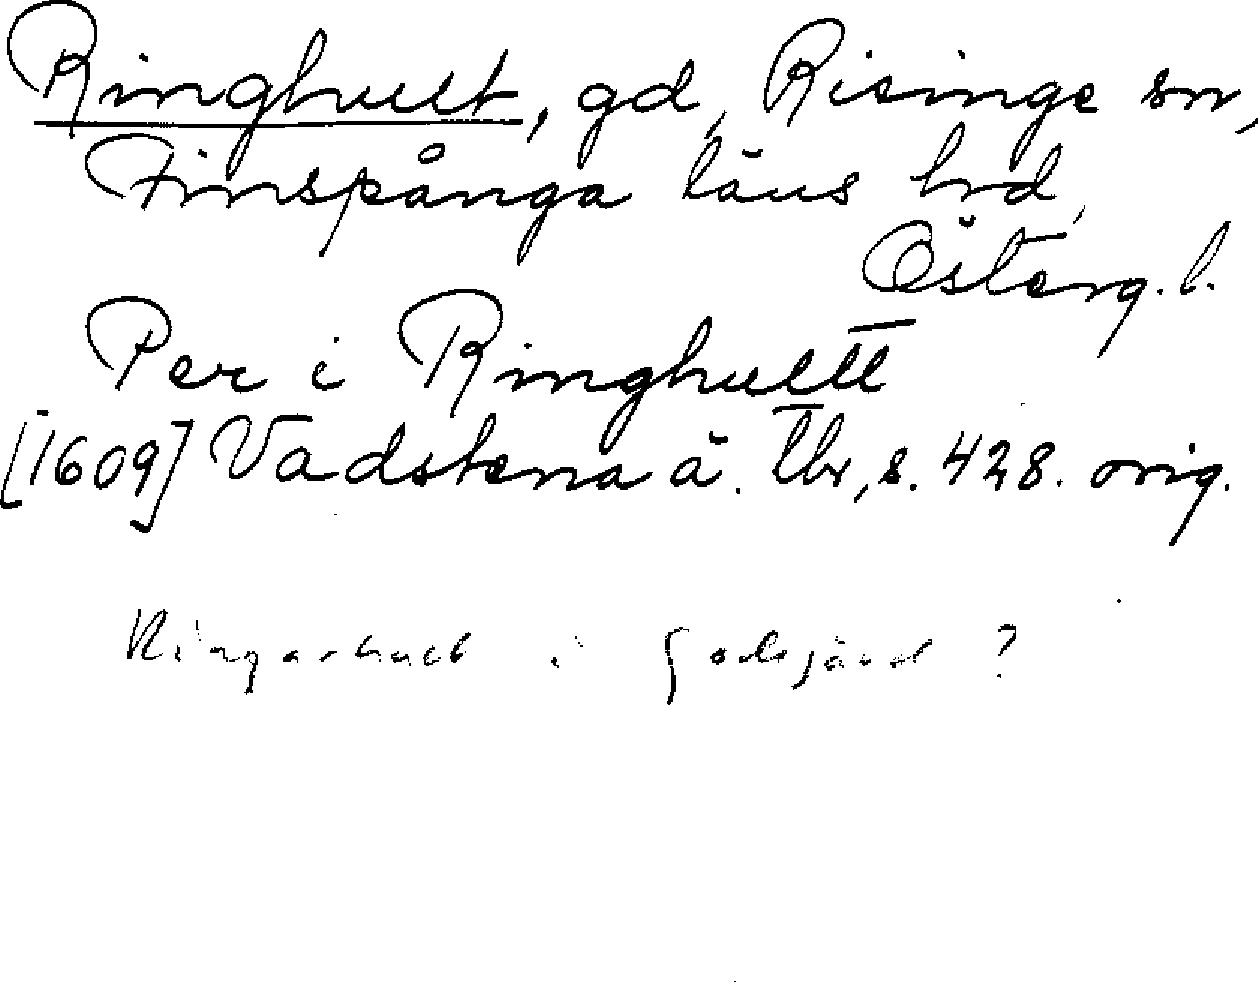 Ringhult, gd, Risinge sn,
Finspånga läns hrd,
Österg. l.
Per i Ringhultt
[1609] Vadstena ä. Tbr, s. 428. orig.
Ringarhult i Godegård ?